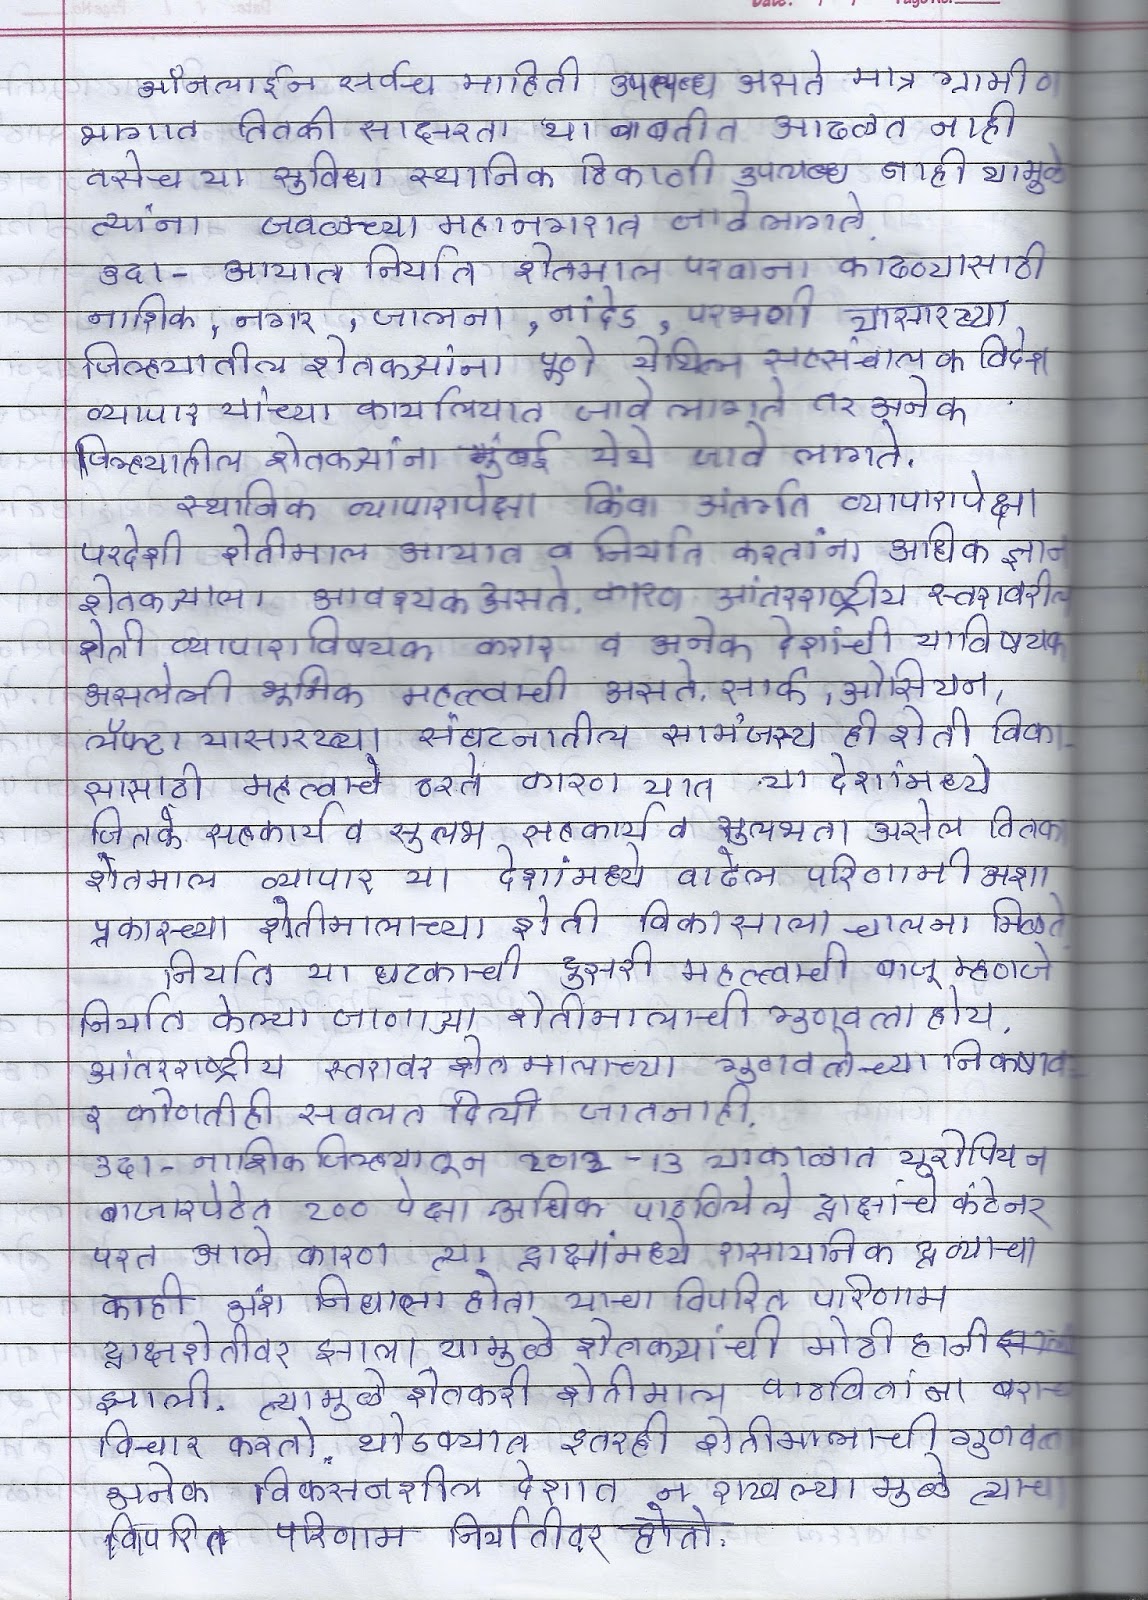 Date: / / Page No.
ऑनलाईन सर्वच माहिती उपलब्ध असते मात्र ग्रामीण
भागात तितकी साक्षरता या बाबतीत आढळत नाही
तसेच या सुविधा स्थानिक ठिकाणी उपलब्ध नाही यामुळे
त्यांना जवळच्या महानगरात जावे लागते.
उदा - आयात निर्याति शेतमाल परवाना काढण्यासाठी
नाशिक, नगर, जालना, नांदेड, परभणी यासारख्या
जिल्ह्यातील शेतकऱ्यांना पूणे येथिल सहसंचालक विदेश
व्यापार यांच्या कार्यालयात जावे लागते तर अनेक
जिल्ह्यातील शेतकऱ्यांना मुंबई येथे जावे लागते.
स्थानिक व्यापारापेक्षा किंवा अंतर्गत व्यापारापेक्षा
परदेशी शेतीमाल आयात व निर्याति करतांना अधिक ज्ञान
शेतकऱ्याला आवश्यक असते. कारण आंतरराष्ट्रीय स्तरावरील
शेती व्यापाराविषयक करार व अनेक देशांची याविषयक
असलेली भूमिक महत्त्वाची असते. सार्क, ओसियन,
लॅफ्टा यासारख्या संघटनातील सामंजस्य ही शेती विका-
सासाठी महत्वाचे ठरते कारण यात या देशांमध्ये
जितके सहकार्य व सुलभ सहकार्य व सुलभता असेल तितका
शेतमाल व्यापार या देशांमध्ये वाढेल परिणामी अशा
प्रकारच्या शेतीमालाच्या शेती विकासाला चालना मिळते
निर्याति या घटकाची दुसरी महत्त्वाची बाजू म्हणजे
निर्याति केल्या जाणाऱ्या शेतीमालाची गुणवत्ता होय.
आंतरराष्ट्रीय स्तरावर शेतमालाच्या गुणवत्तेच्या निकषाव-
र कोणतीही सवलत दिली जातनाही.
उदा - नाशिक जिल्ह्यातून 2012 -13 याकाळात युरोपियन
बाजारपेठेत 200 पेक्षा अधिक पाठविलेले द्राक्षांचे कंटेनर
परत आले कारण त्या द्राक्षांमध्ये रासायनिक द्रव्याचा
काही अंश निघाला होता याचा विपरित परिणाम
द्राक्षशेतीवर झाला यामुळे शेतकऱ्यांची मोठी हानी
झाली. त्यामुळे शेतकरी शेतीमाल पाठवितांना बराच
विचार करतो. थोडक्यात इतरही शेतीमालाची गुणवत्ता
अनेक विकसनशील देशात न राखल्या मुळे त्याचा
विपरित परिणाम निर्यातीवर होतो.